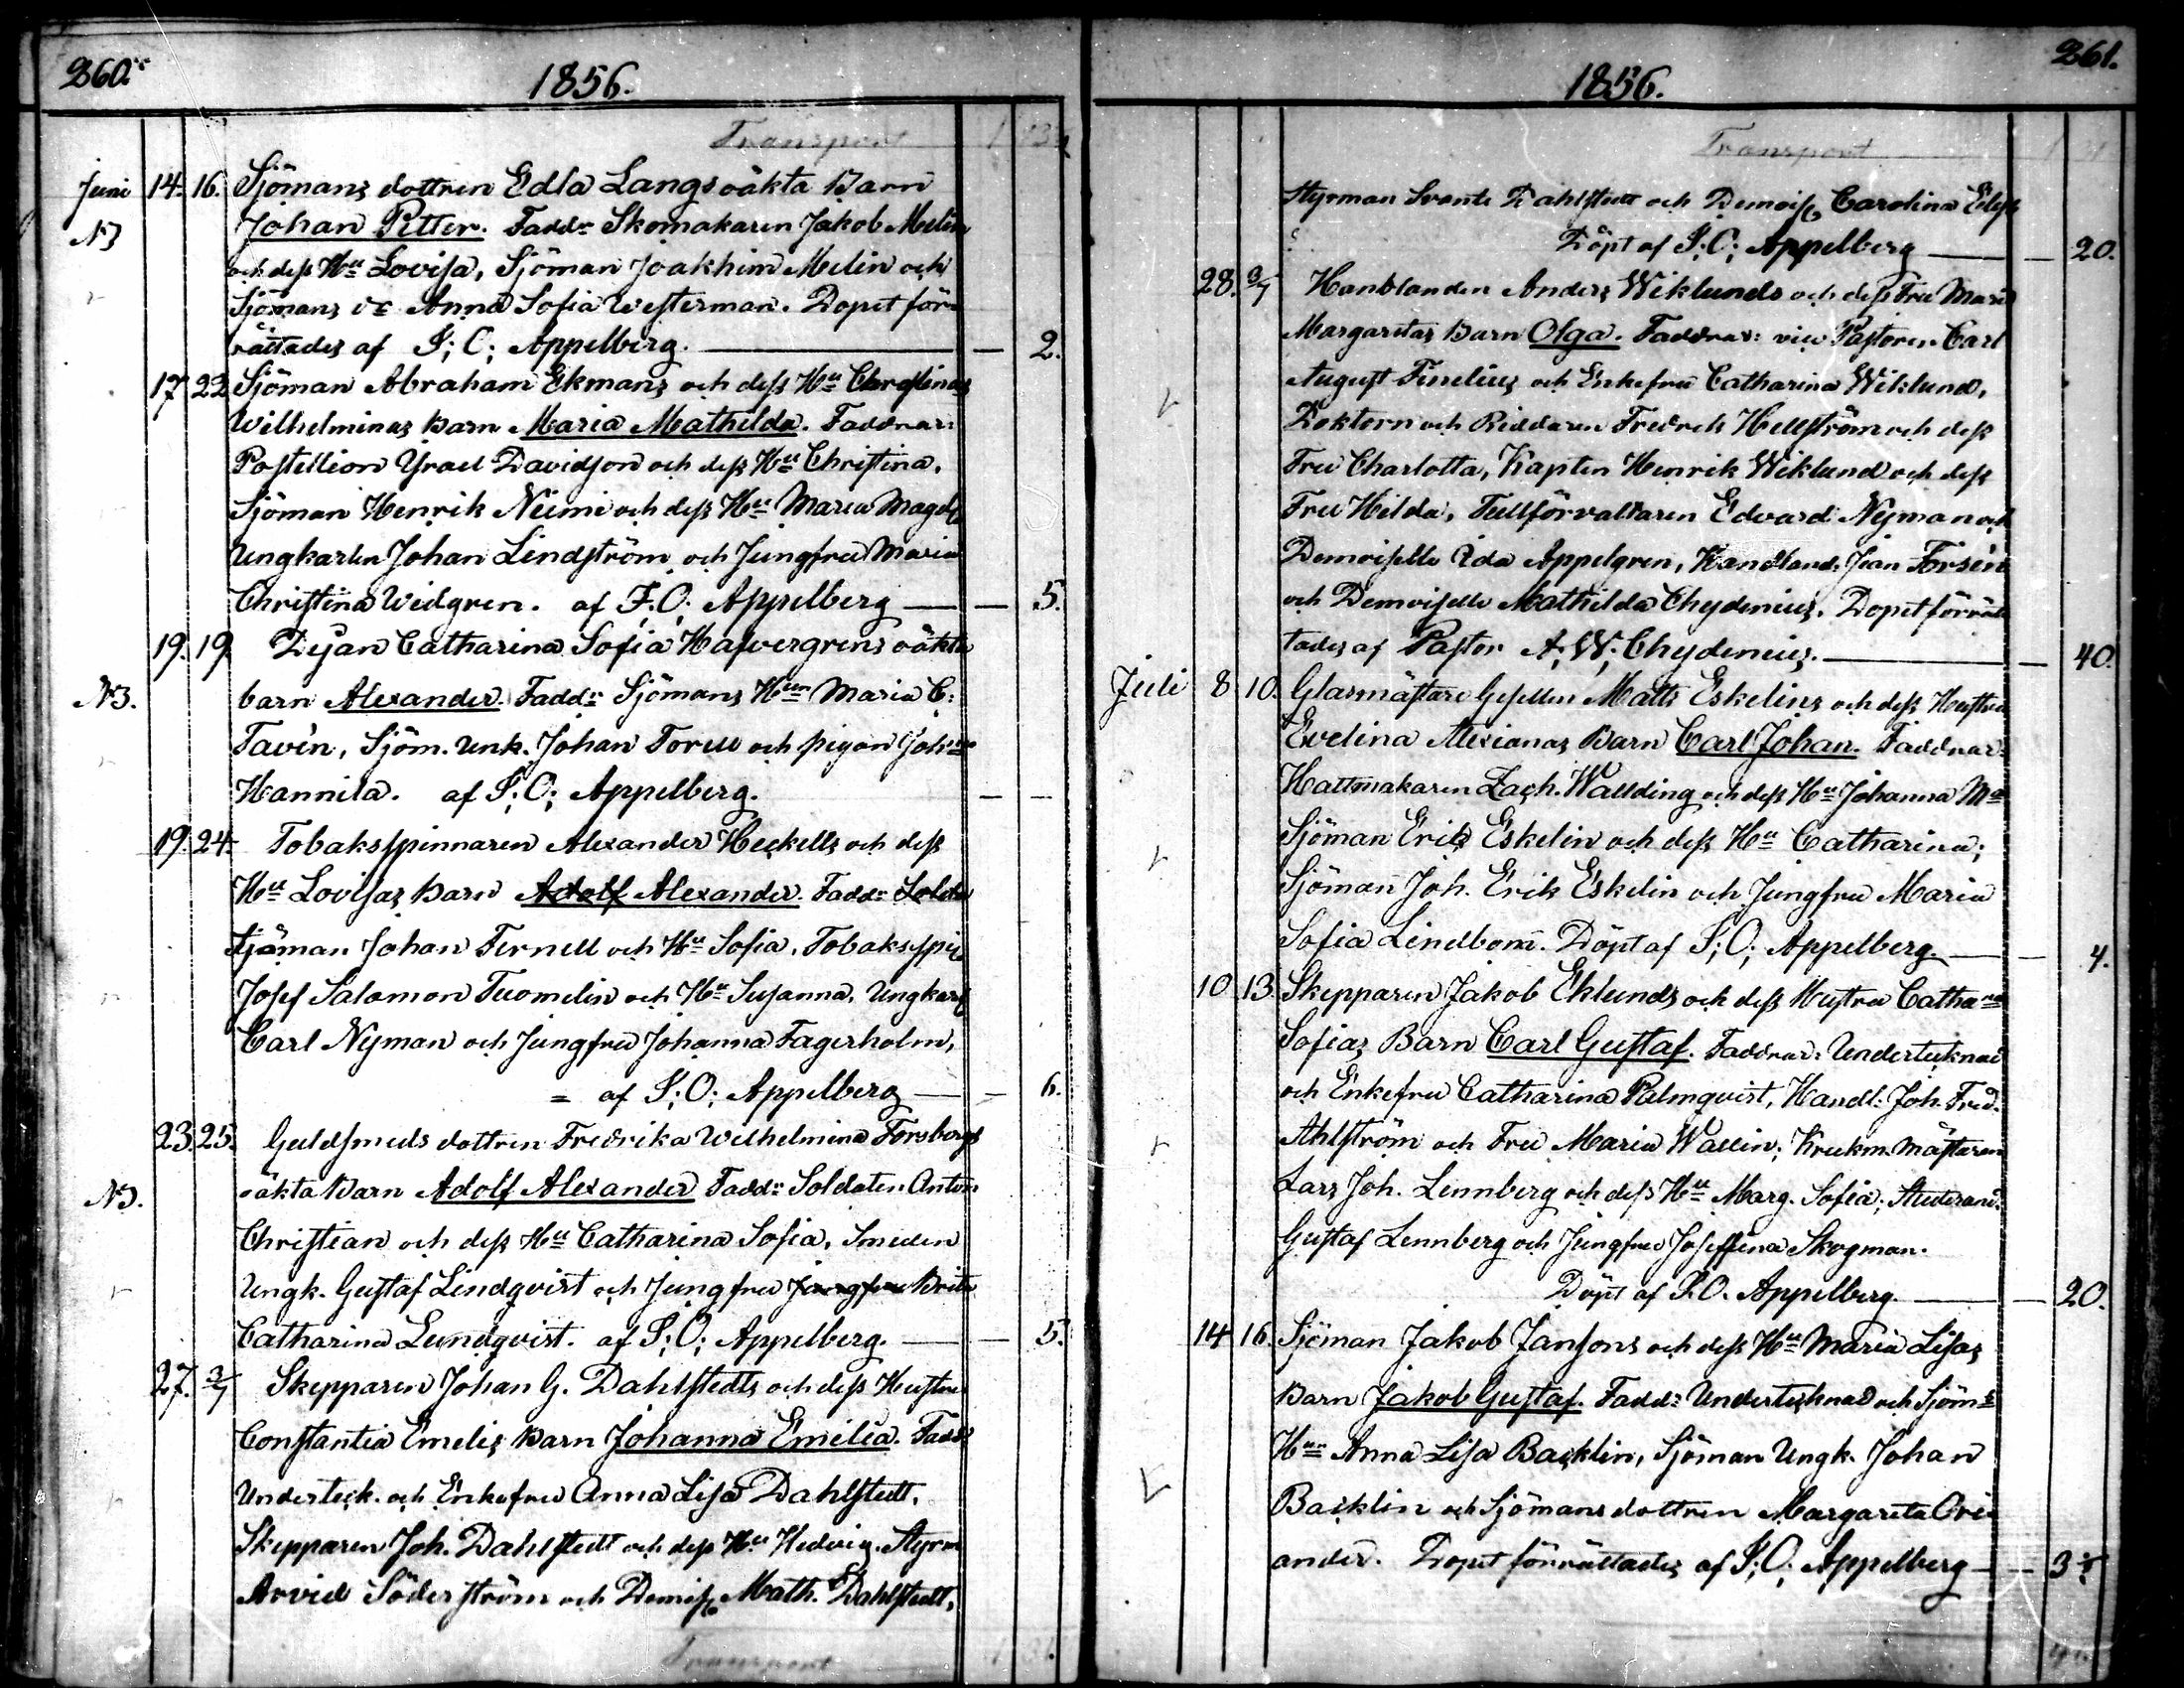 260.
1856.
Transport
Juni 14. 16. Sjömans dottren Edla Langs oäkta Barn
N3 Johan Petter. Fadd:r Skomakaren Jakob Melin
och dess H:u Lovisa, Sjöman Joakhim Melin och
Sjömans Anna Sofia Westerman. Dopet för-
rättades af I; O; Appelberg. — 2.
17 22 Sjöman Abraham Ekmans och dess H:u Christinas
Wilhelminas Barn Maria Mathilda. Faddrar:
Postellion Ysrael Davidson och dess H:u Christina,
Sjöman Henrik Niemi och dess H:u Maria Magd.
Ungkarlen Johan Lindström och Jungfru Maria
Christina Widgren. af I; O; Appelberg — 5.
19. 19. Pigan Catharina Sofia Hafvergrens oäkta
N3. barn Alexander. Fadd:r Sjömans H:un Maria C:
Tavén, Sjöm. Unk. Johan Torell och pigan Joh:na
Hannila. af I; O; Appelberg. — —
19. 24. Tobaksspinnaren Alexander Heckells och dess
H:u Lovisas Barn Adolf Alexander. Fadd:r Solda
Sjöman Johan Ternell och H:u Sofia, Tobaksspi
Josef Salomon Tuomelin och H:u Susanna, Ungkarl
Carl Nyman och Jungfru Johanna Fagerholm,
= af I; O; Appelberg — 6.
23. 25. Guldsmeds dottren Fredrika Wilhelmina Forsbergs
N3. oäkta Barn Adolf Alexander Fadd:r Soldaten Anton
Christian och dess H:u Catharina Sofia, Smeden
Ungk. Gustaf Lindqvist och Jungfru Jungfru Brita
Catharina Lundqvist. af I; O; Appelberg. — 5.
27. 3/7 Skepparen Johan G. Dahlstedts och dess Hustru
Constantia Emelis Barn Johanna Emilia. Fadd:
Underteck. och Enkefru Anna Lisa Dahlstedt,
Skepparen Joh. Dahlstedt och dess H:u Hedvig. Styrm
Arvid Söderström och Demois. Math. Dahlstedt,
Transport
261.
1856.
Transport
Styrman Svante Dahlstedt och Demois. Carolina
Döpt af I; O; Appelberg — 20.
28. 3/7 Handlanden Anders Wiklunds och dess Fru Maria
Margaretas Barn Olga. Faddrar: vice Pastoren Carl
August Finelius och Enkefru Catharina Wiklund,
Doktorn och Riddaren Fredrik Hellström och dess
Fru Charlotta, Kapten Henrik Wiklund och dess
Fru Hilda, Tullförvaltaren Edvard Nyman och
Demoiselle Ida Appelgren, Handland. Jean Forsén
och Demoiselle Mathilda Chydenius. Dopet förrät-
tades af Pastor A; W; Chydenius. — 40.
Juli 8 10. Glasmästare Gesellen Matts Eskelins och dess Hustru
Evelina Alexianas Barn Carl Johan. Faddrar:
Hattmakaren Zach. Wallding och dess H:u Johanna M:a
Sjöman Erik Eskelin och dess H:u Catharina;
Sjöman Joh. Erik Eskelin och Jungfru Maria
Sofia Lindbom. Döpt af I; O; Appelberg. — 4.
10 13. Skepparen Jakob Eklunds och dess Hustru Catha:na
Sofias Barn Carl Gustaf. Faddrar: Undertecknad
och Enkefru Catharina Palmqvist, Handl: Joh. Fred.
Ahlström och Fru Maria Wallin; Krukm. mästaren
Lars Joh. Lennberg och dess H:u Marg. Sofia; Studerand.
Gustaf Lennberg och Jungfru Josefina Skogman.
Döpt af I. O. Appelberg. — 20.
14 16. Sjöman Jakob Jansons och dess H:u Maria Lisas
Barn Jakob Gustaf. Fadd: Undertecknad och Sjöm:s
H:un Anna Lisa Backlin, Sjöman Ungk. Johan
Backlin och Sjömans dottren Margareta Ori-
ander. Dopet förrättades af I; O; Appelberg —